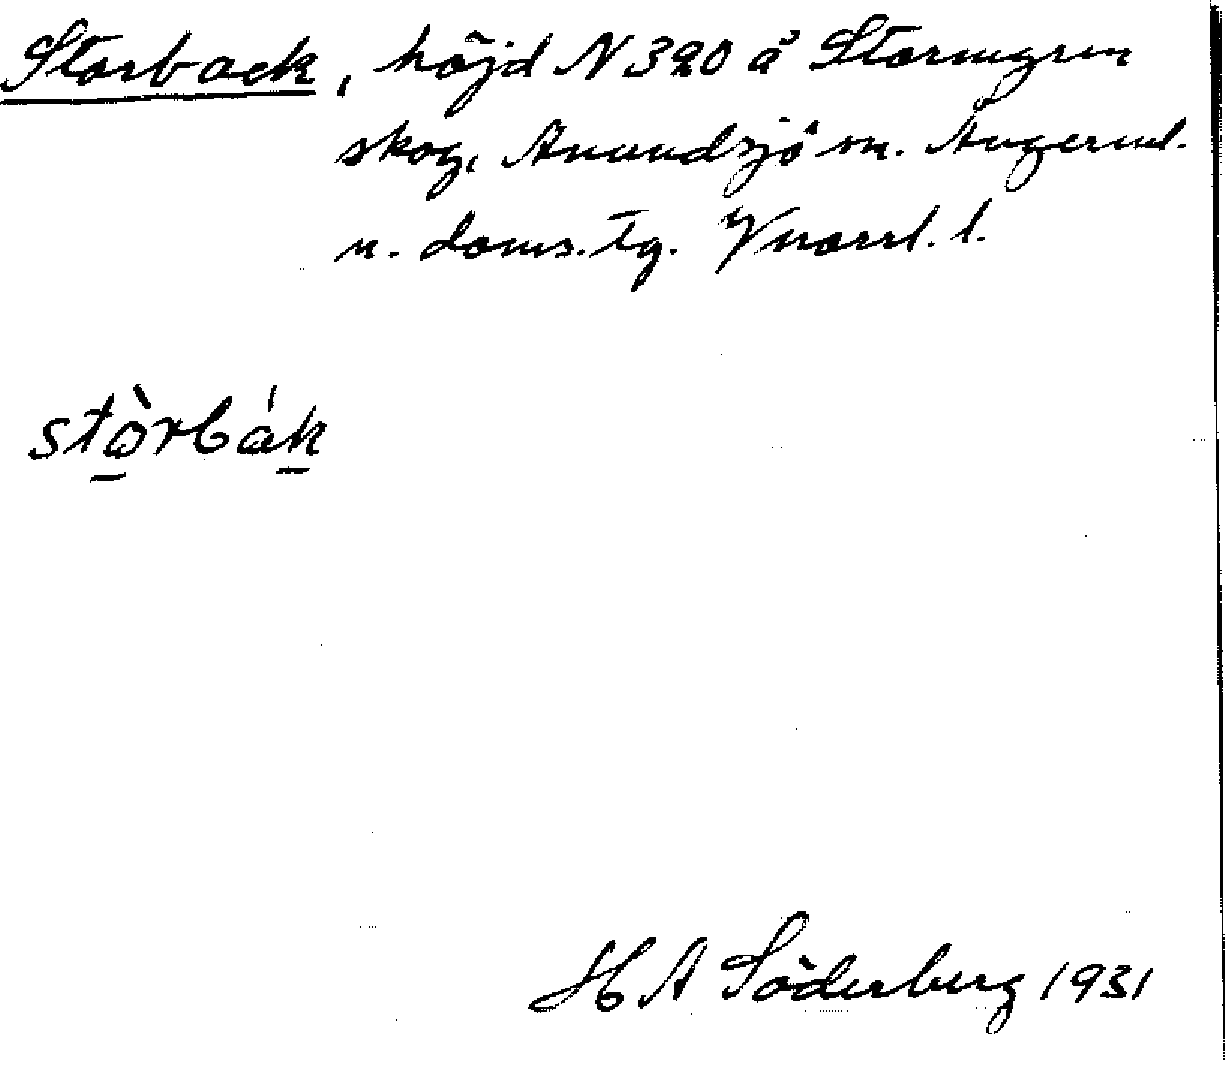 Storback, höjd N 320 å Stormyran
skog, Anundsjö sn. Ångerml.
n. doms. tg. Vnorrl. l.
stòrbák
H A Söderberg 1931